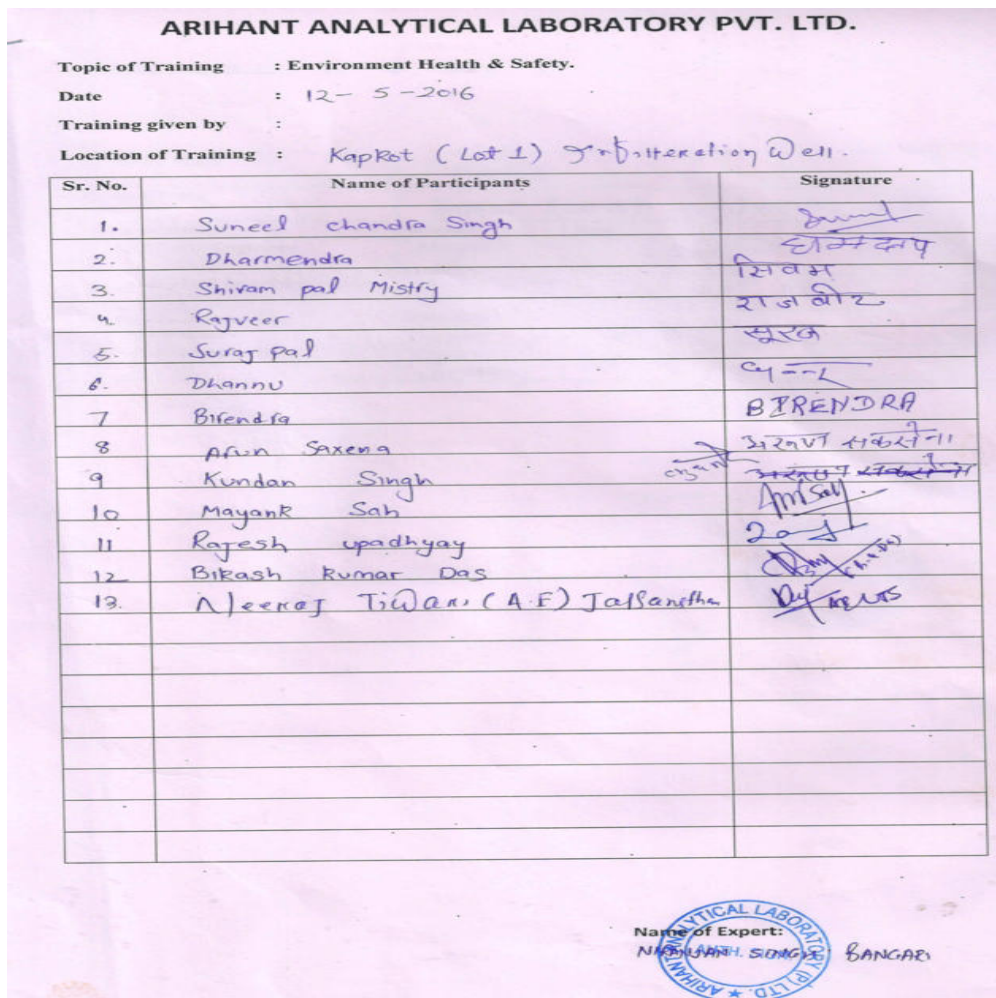 ARIHANT ANALYTICAL LABORATORY PVT. LTD.
Topic of Training : Environment Health & Safety.
Date : 12- 5-2016
Training given by :
Location of Training : Kapkot (Lot 1) Well.
Sr. No. Name of Participants Signature
1. Suneel chandra Singh
2. Dharmendra
3. Shivam pal Mistry सिवम
4. Rajveer राजवीर
5. Suraj pal सूरज
6. Dhannu
7 Birendra BIRENDRA
8 Arun Saxena सकसेना
9 Kundan Singh
10 Mayank Sah
11 Rajesh upadhyay
12 Bikash Kumar Das
13. Neeraj Tiwari (A.E) Jalsanstha
Name of Expert:
SINGH BANGARI
ARIHANT ANALYTICAL LABORATORY (P) LTD.